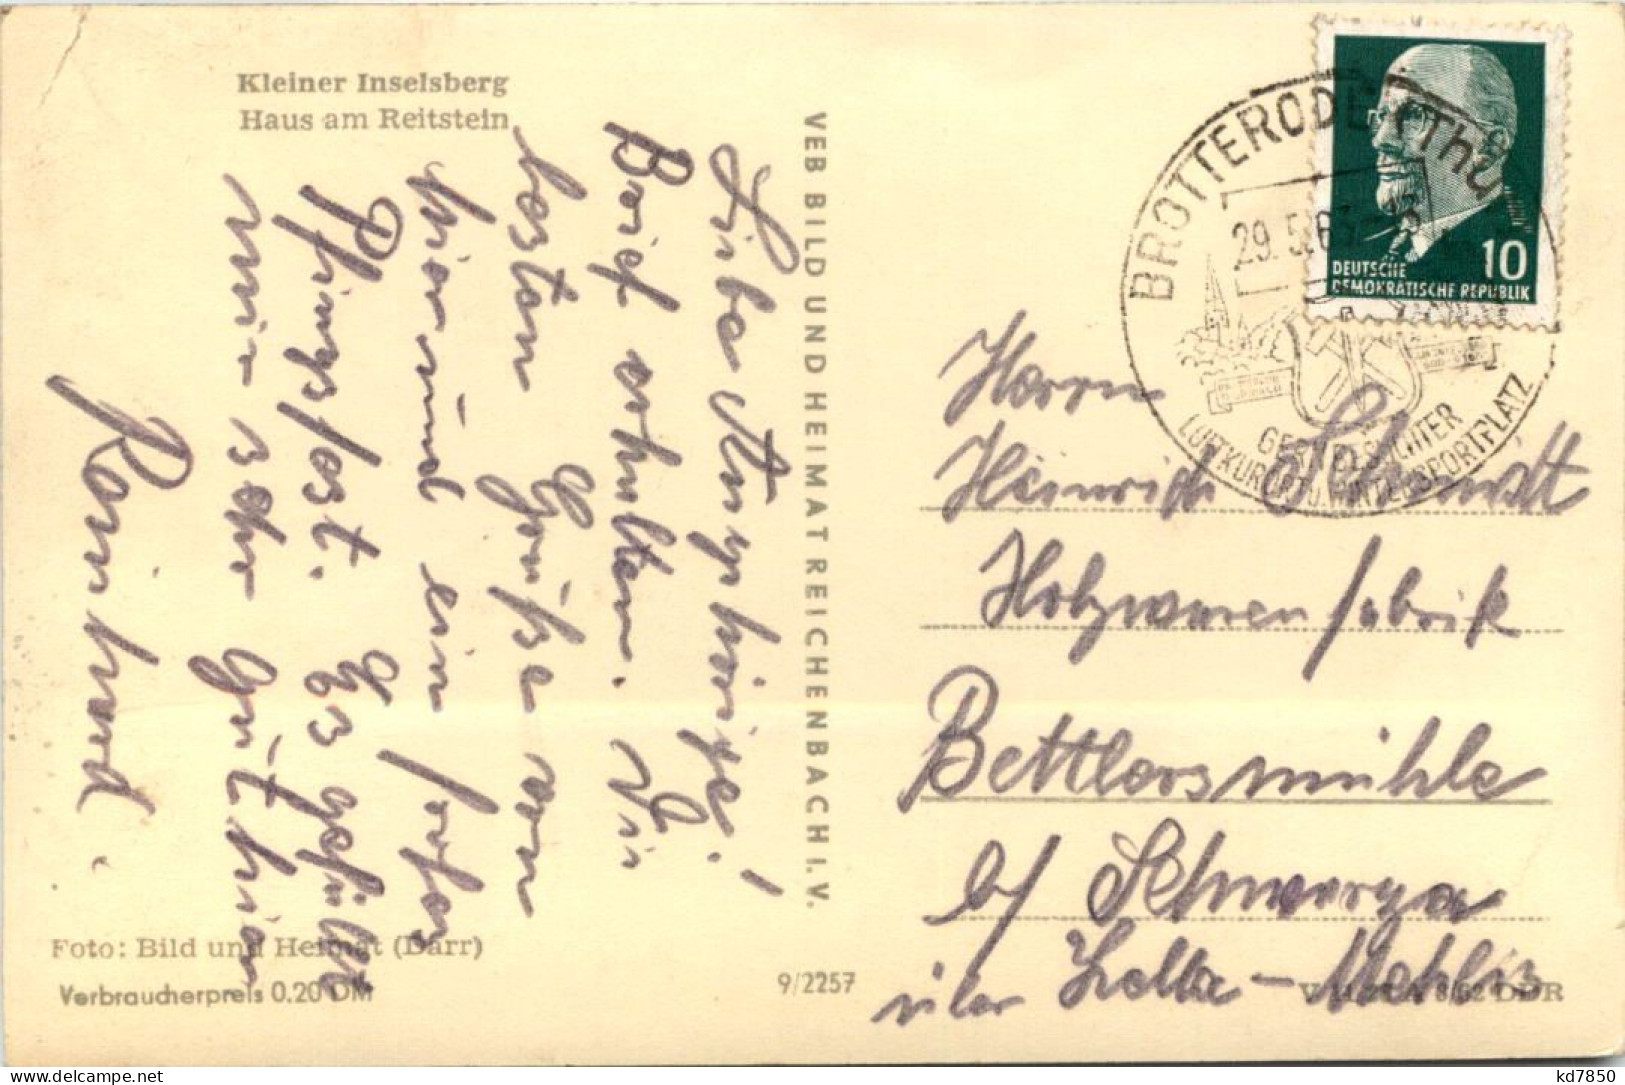 Kleiner Inselsberg
Haus am Reitstein
Liebe Angehörige!
Brief erhalten. Die
besten Grüße von
hier und ein frohes
Pfingstfest. Es gefällt
mir sehr gut hier
Reinhard.
Foto: Bild und Heimat (Darr)
Verbraucherpreis 0.20 DM
VEB BILD UND HEIMAT REICHENBACH I. V.
9/2257
BROTTERODE (Thür
29.5.63
LUFTKURORT U. WINTERSPORTPLATZ
10
DEUTSCHE
DEMOKRATISCHE REPUBLIK
Herrn
Heinrich Schmidt
Holzwarenfabrik
Bettlersmühle
b/ Schwarza
über Zella-Mehlis
DDR
kd7850